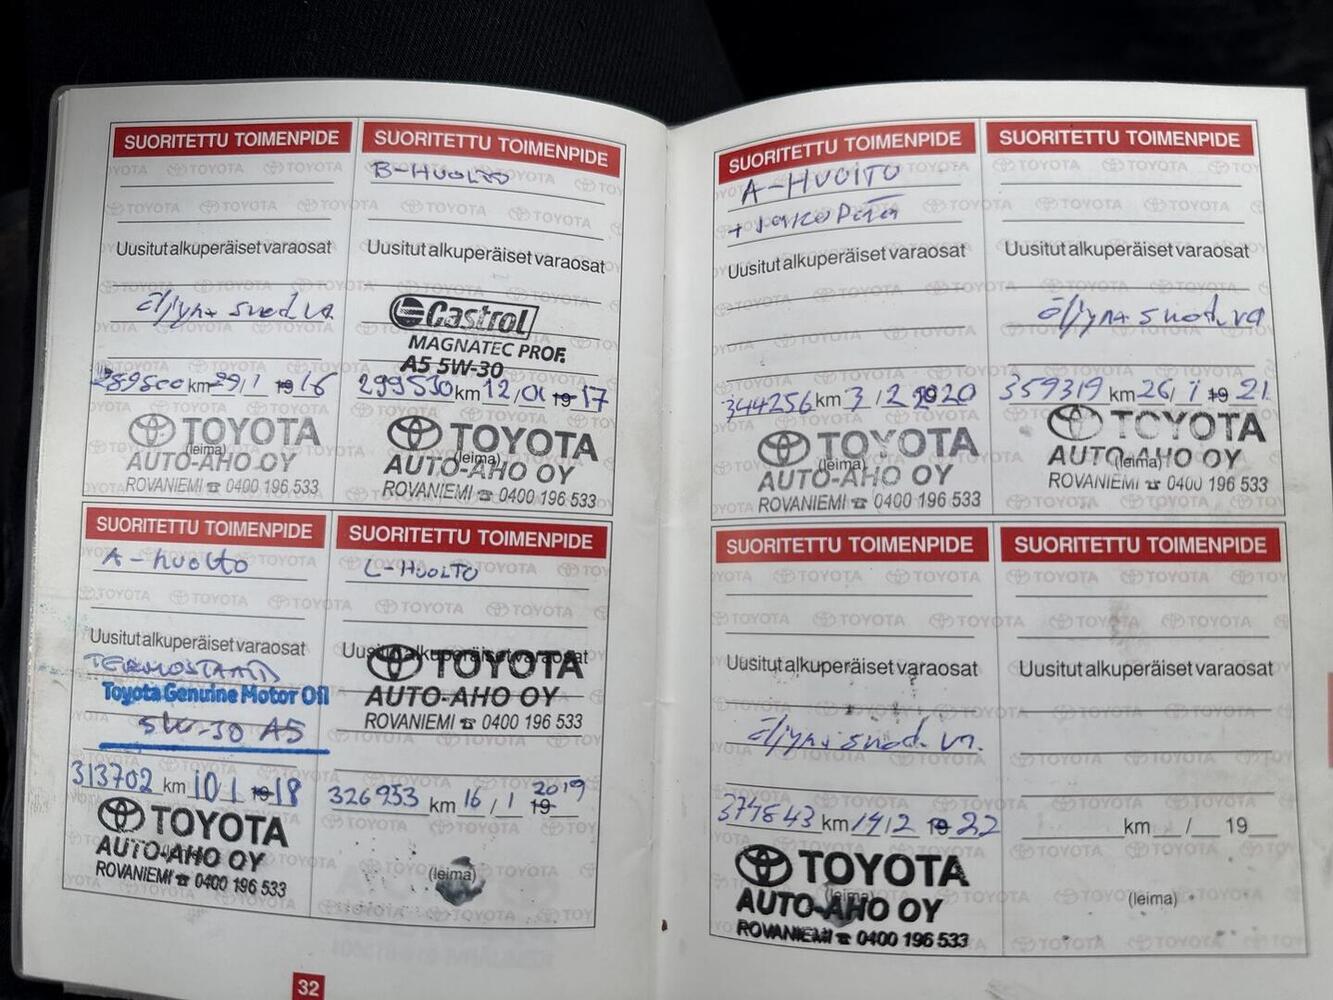 SUORITETTU TOIMENPIDE
Uusitut alkuperäiset varaosat
öljyn+ suod. va
289800 km 29/1 19 16
TOYOTA
(leima)
AUTO-AHO OY
ROVANIEMI ☎ 0400 196 533
SUORITETTU TOIMENPIDE
B-HUOLTO
Uusitut alkuperäiset varaosat
Castrol
MAGNATEC PROF.
A5 5W-30
299530 km 12/01 19 17
TOYOTA
(leima)
AUTO-AHO OY
ROVANIEMI ☎ 0400 196 533
SUORITETTU TOIMENPIDE
A-huolto
Uusitut alkuperäiset varaosat
TERMOSTAATTI
Toyota Genuine Motor Oil
5W-30 A5
313702 km 10/1 19 18
TOYOTA
AUTO-AHO OY
ROVANIEMI ☎ 0400 196 533
SUORITETTU TOIMENPIDE
C-HUOLTO
Uusitut alkuperäiset varaosat
TOYOTA
AUTO-AHO OY
ROVANIEMI ☎ 0400 196 533
326953 km 16/1 19 2019
(leima)
32
SUORITETTU TOIMENPIDE
A-HUOLTO
+ Jakopää
Uusitut alkuperäiset varaosat
344256 km 3/2 2020
TOYOTA
(leima)
AUTO-AHO OY
ROVANIEMI ☎ 0400 196 533
SUORITETTU TOIMENPIDE
Uusitut alkuperäiset varaosat
öljyn+ suod. va
359319 km 26/1 19 21
TOYOTA
AUTO-AHO OY
(leima)
ROVANIEMI ☎ 0400 196 533
SUORITETTU TOIMENPIDE
Uusitut alkuperäiset varaosat
öljyn+ suod. va.
374843 km 14/2 19 22
TOYOTA
(leima)
AUTO-AHO OY
ROVANIEMI ☎ 0400 196 533
SUORITETTU TOIMENPIDE
Uusitut alkuperäiset varaosat
km / 19
(leima)